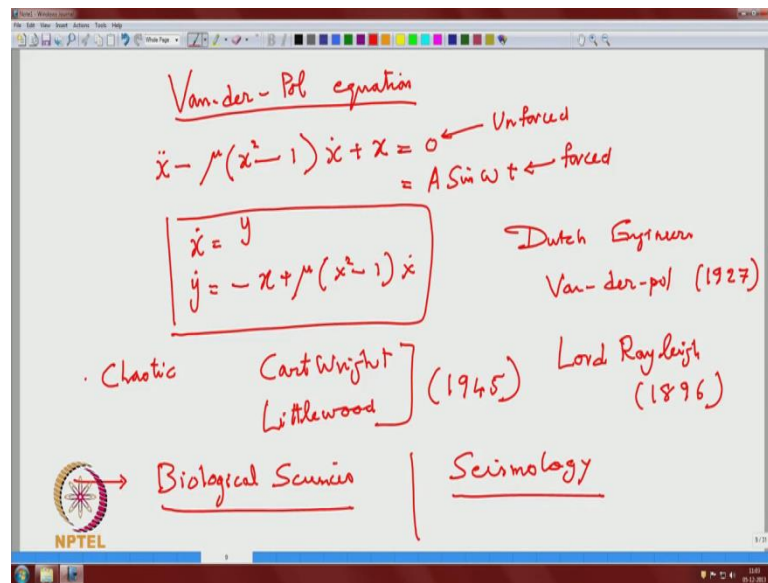 Note1 - Windows Journal
File Edit View Insert Actions Tools Help
Whole Page
Van-der-Pol equation
ẍ - μ(x² - 1) ẋ + x = 0 ← Unforced
= A Sin ω t ← forced
ẋ = y
ẏ = - x + μ(x² - 1) ẋ
Dutch Engineers
Van-der-pol (1927)
Lord Rayleigh
(1896)
. Chaotic CartWright
Littlewood ] (1945)
→ Biological Sciences | Seismology
NPTEL
9
9/21
11:03